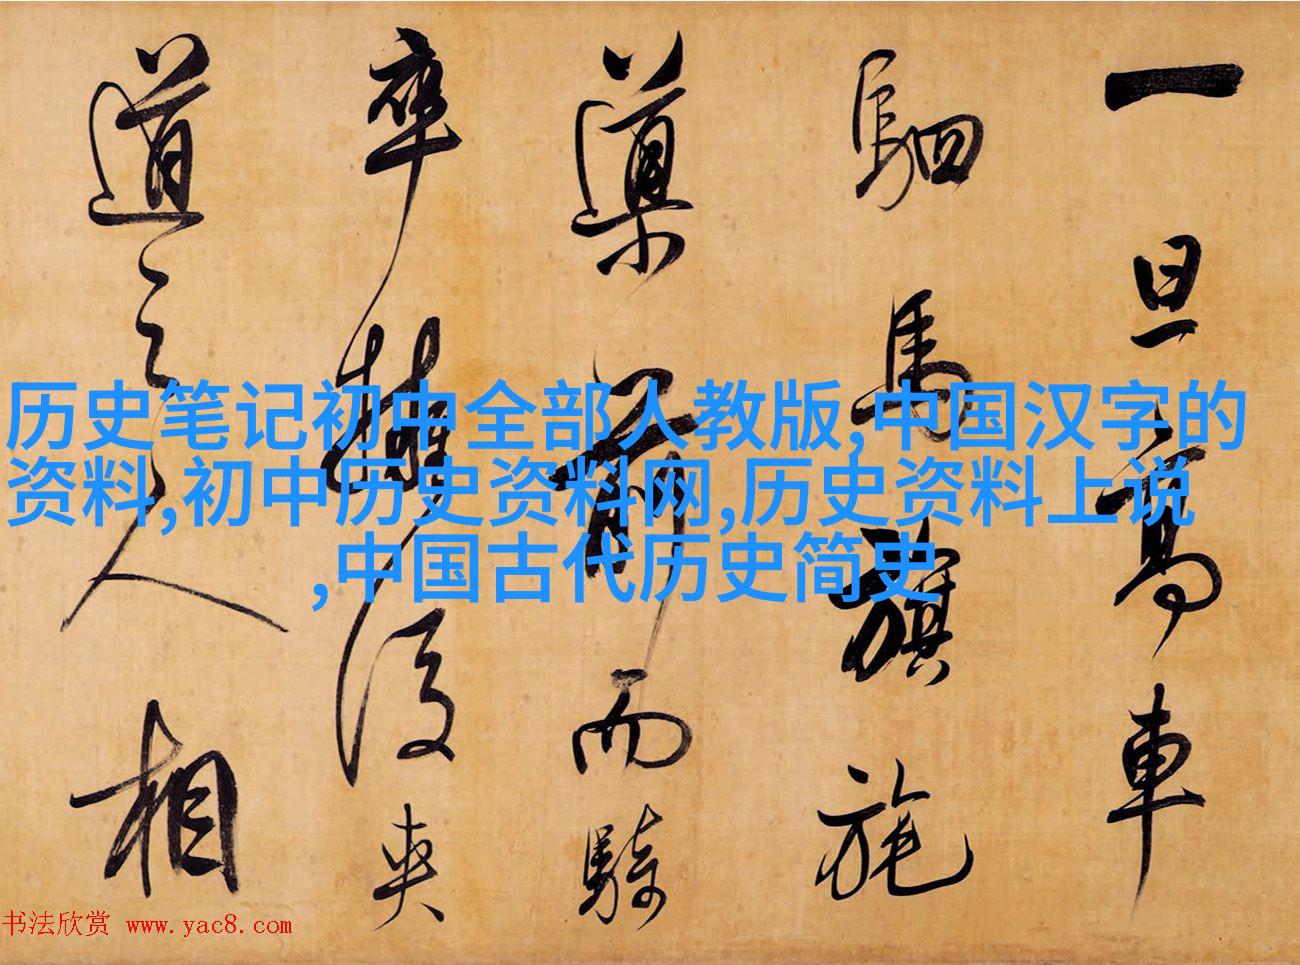 一旦高車
駟馬旗旄
導前而騎
卒擁後夾
道之人相
历史笔记初中全部人教版,中国汉字的
资料,初中历史资料网,历史资料上说
,中国古代历史简史
书法欣赏 www.yac8.com